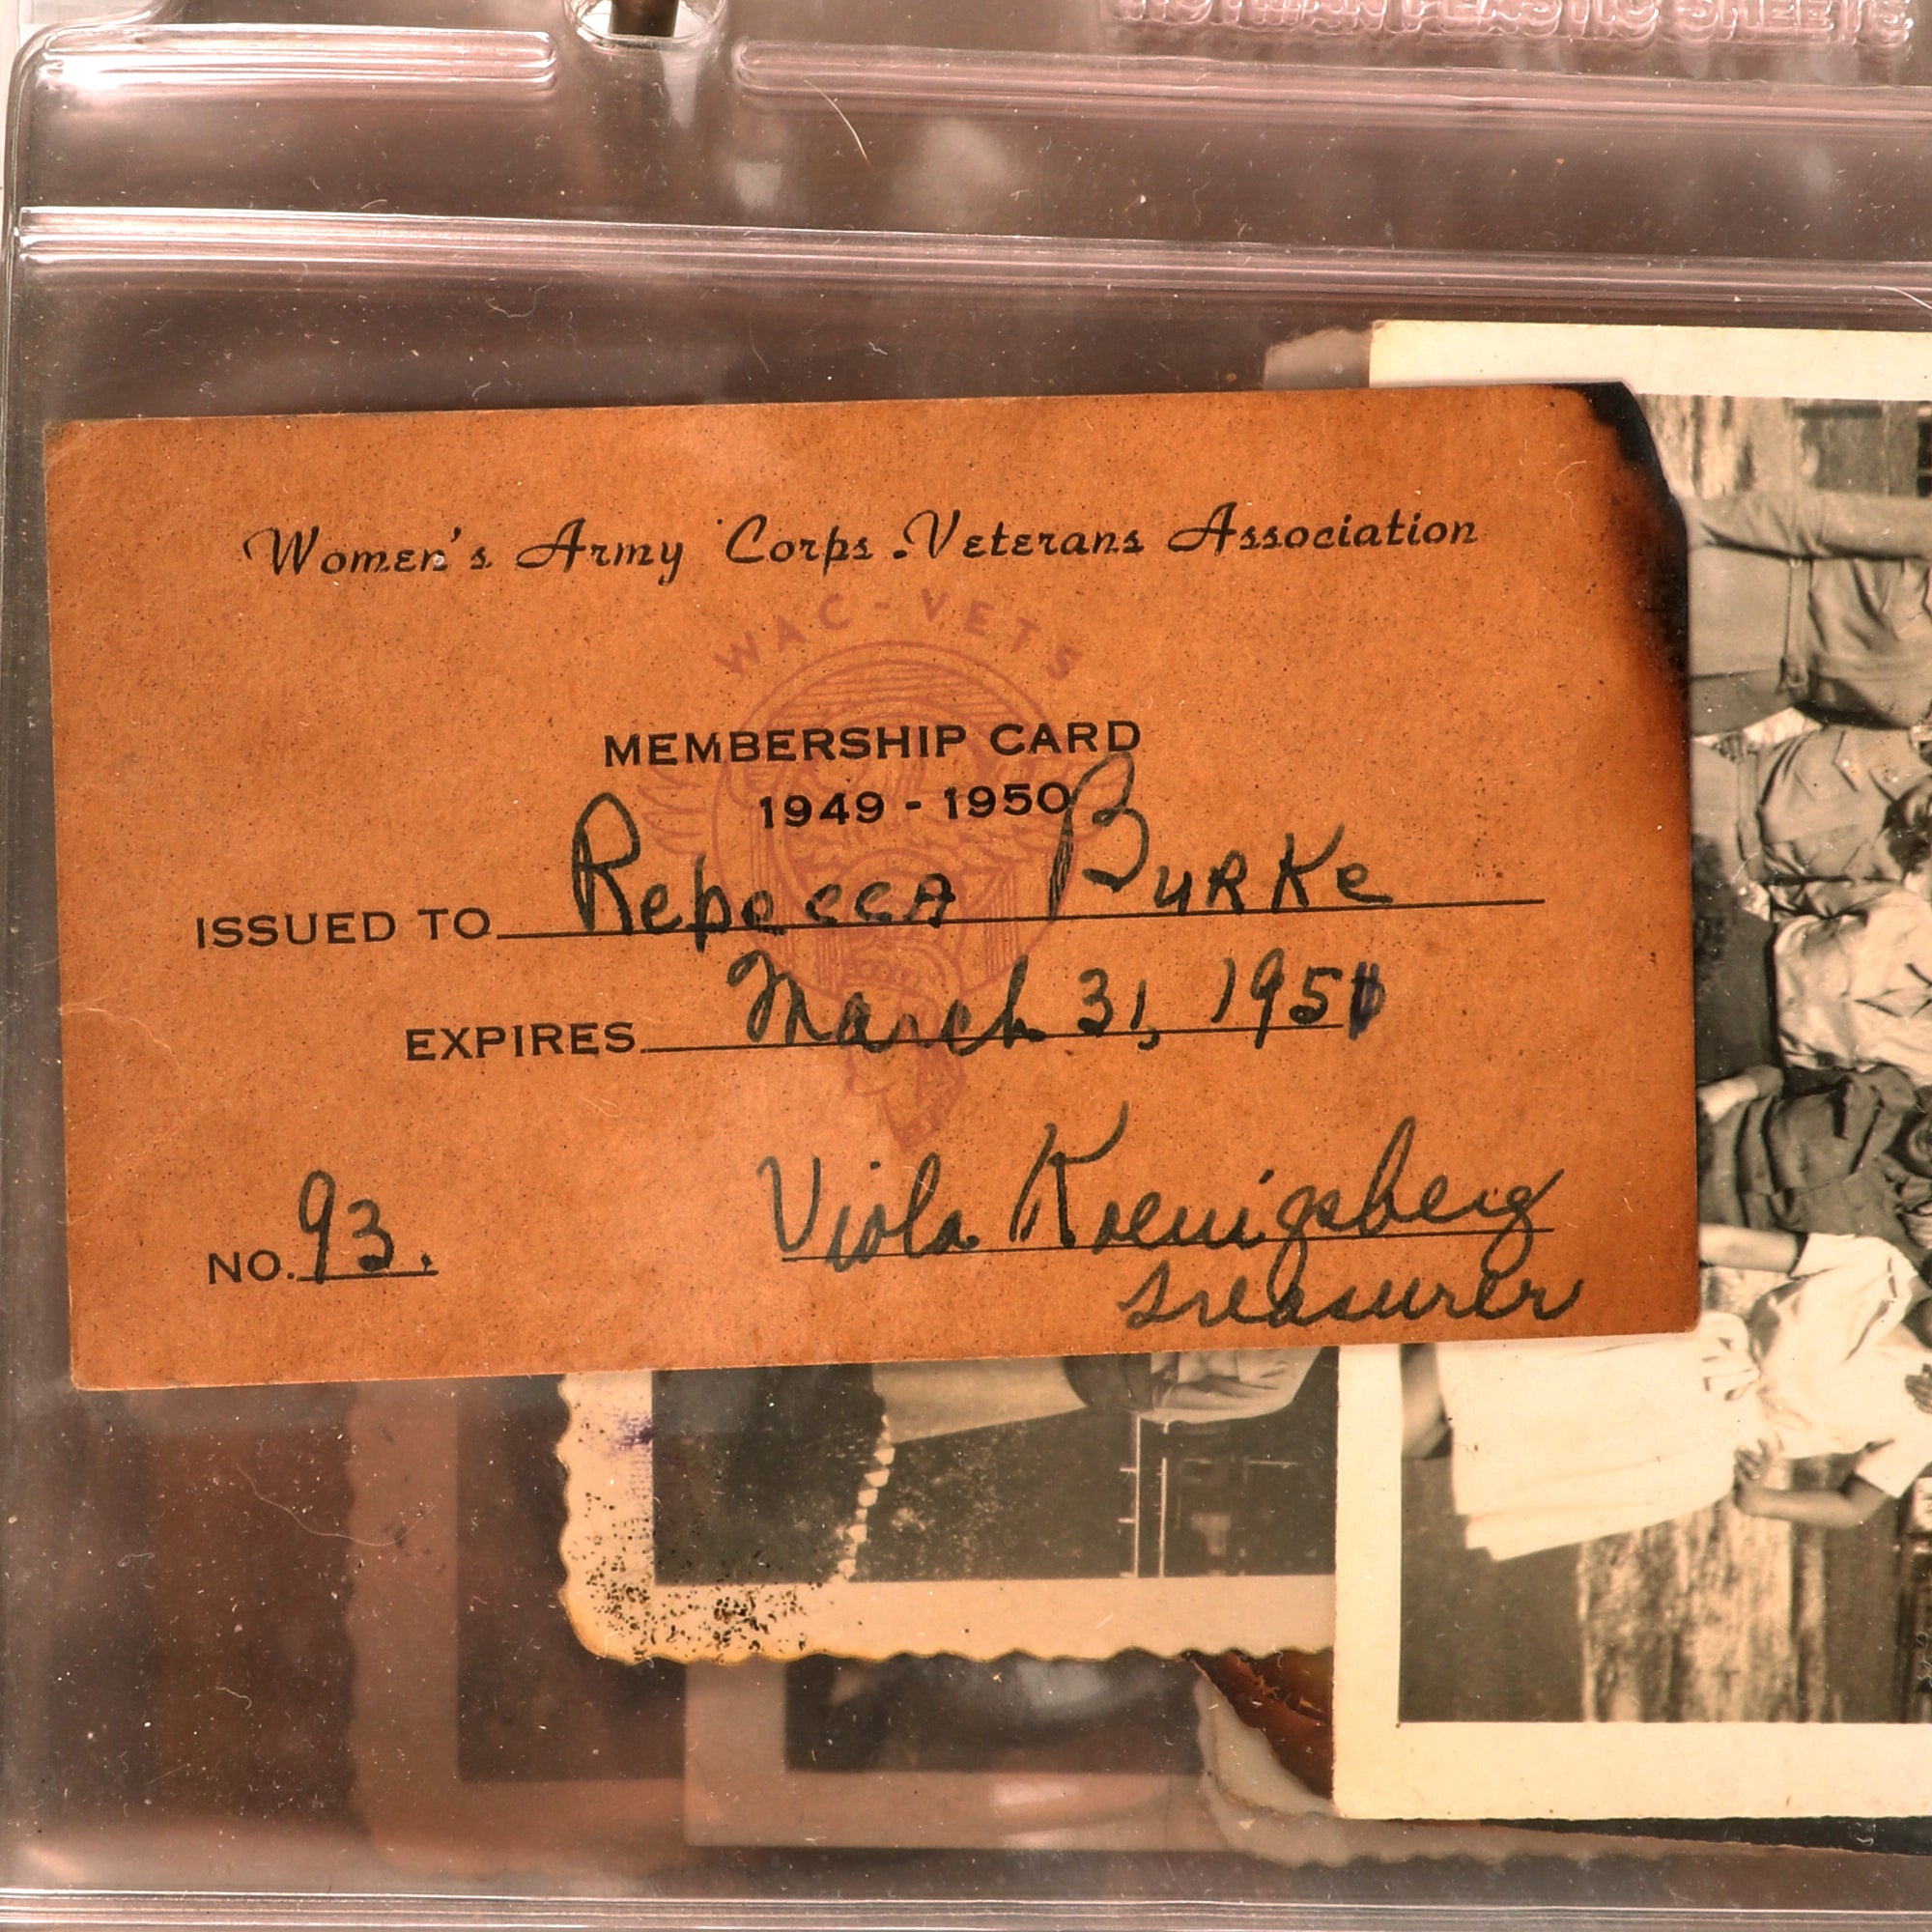 PLASTIC SHEETS
Women's Army Corps Veterans Association
WAC-VETS
MEMBERSHIP CARD
1949 - 1950
ISSUED TO Rebecca Burke
EXPIRES March 31, 1951
NO. 93.
Viola Koenigsberg
Treasurer